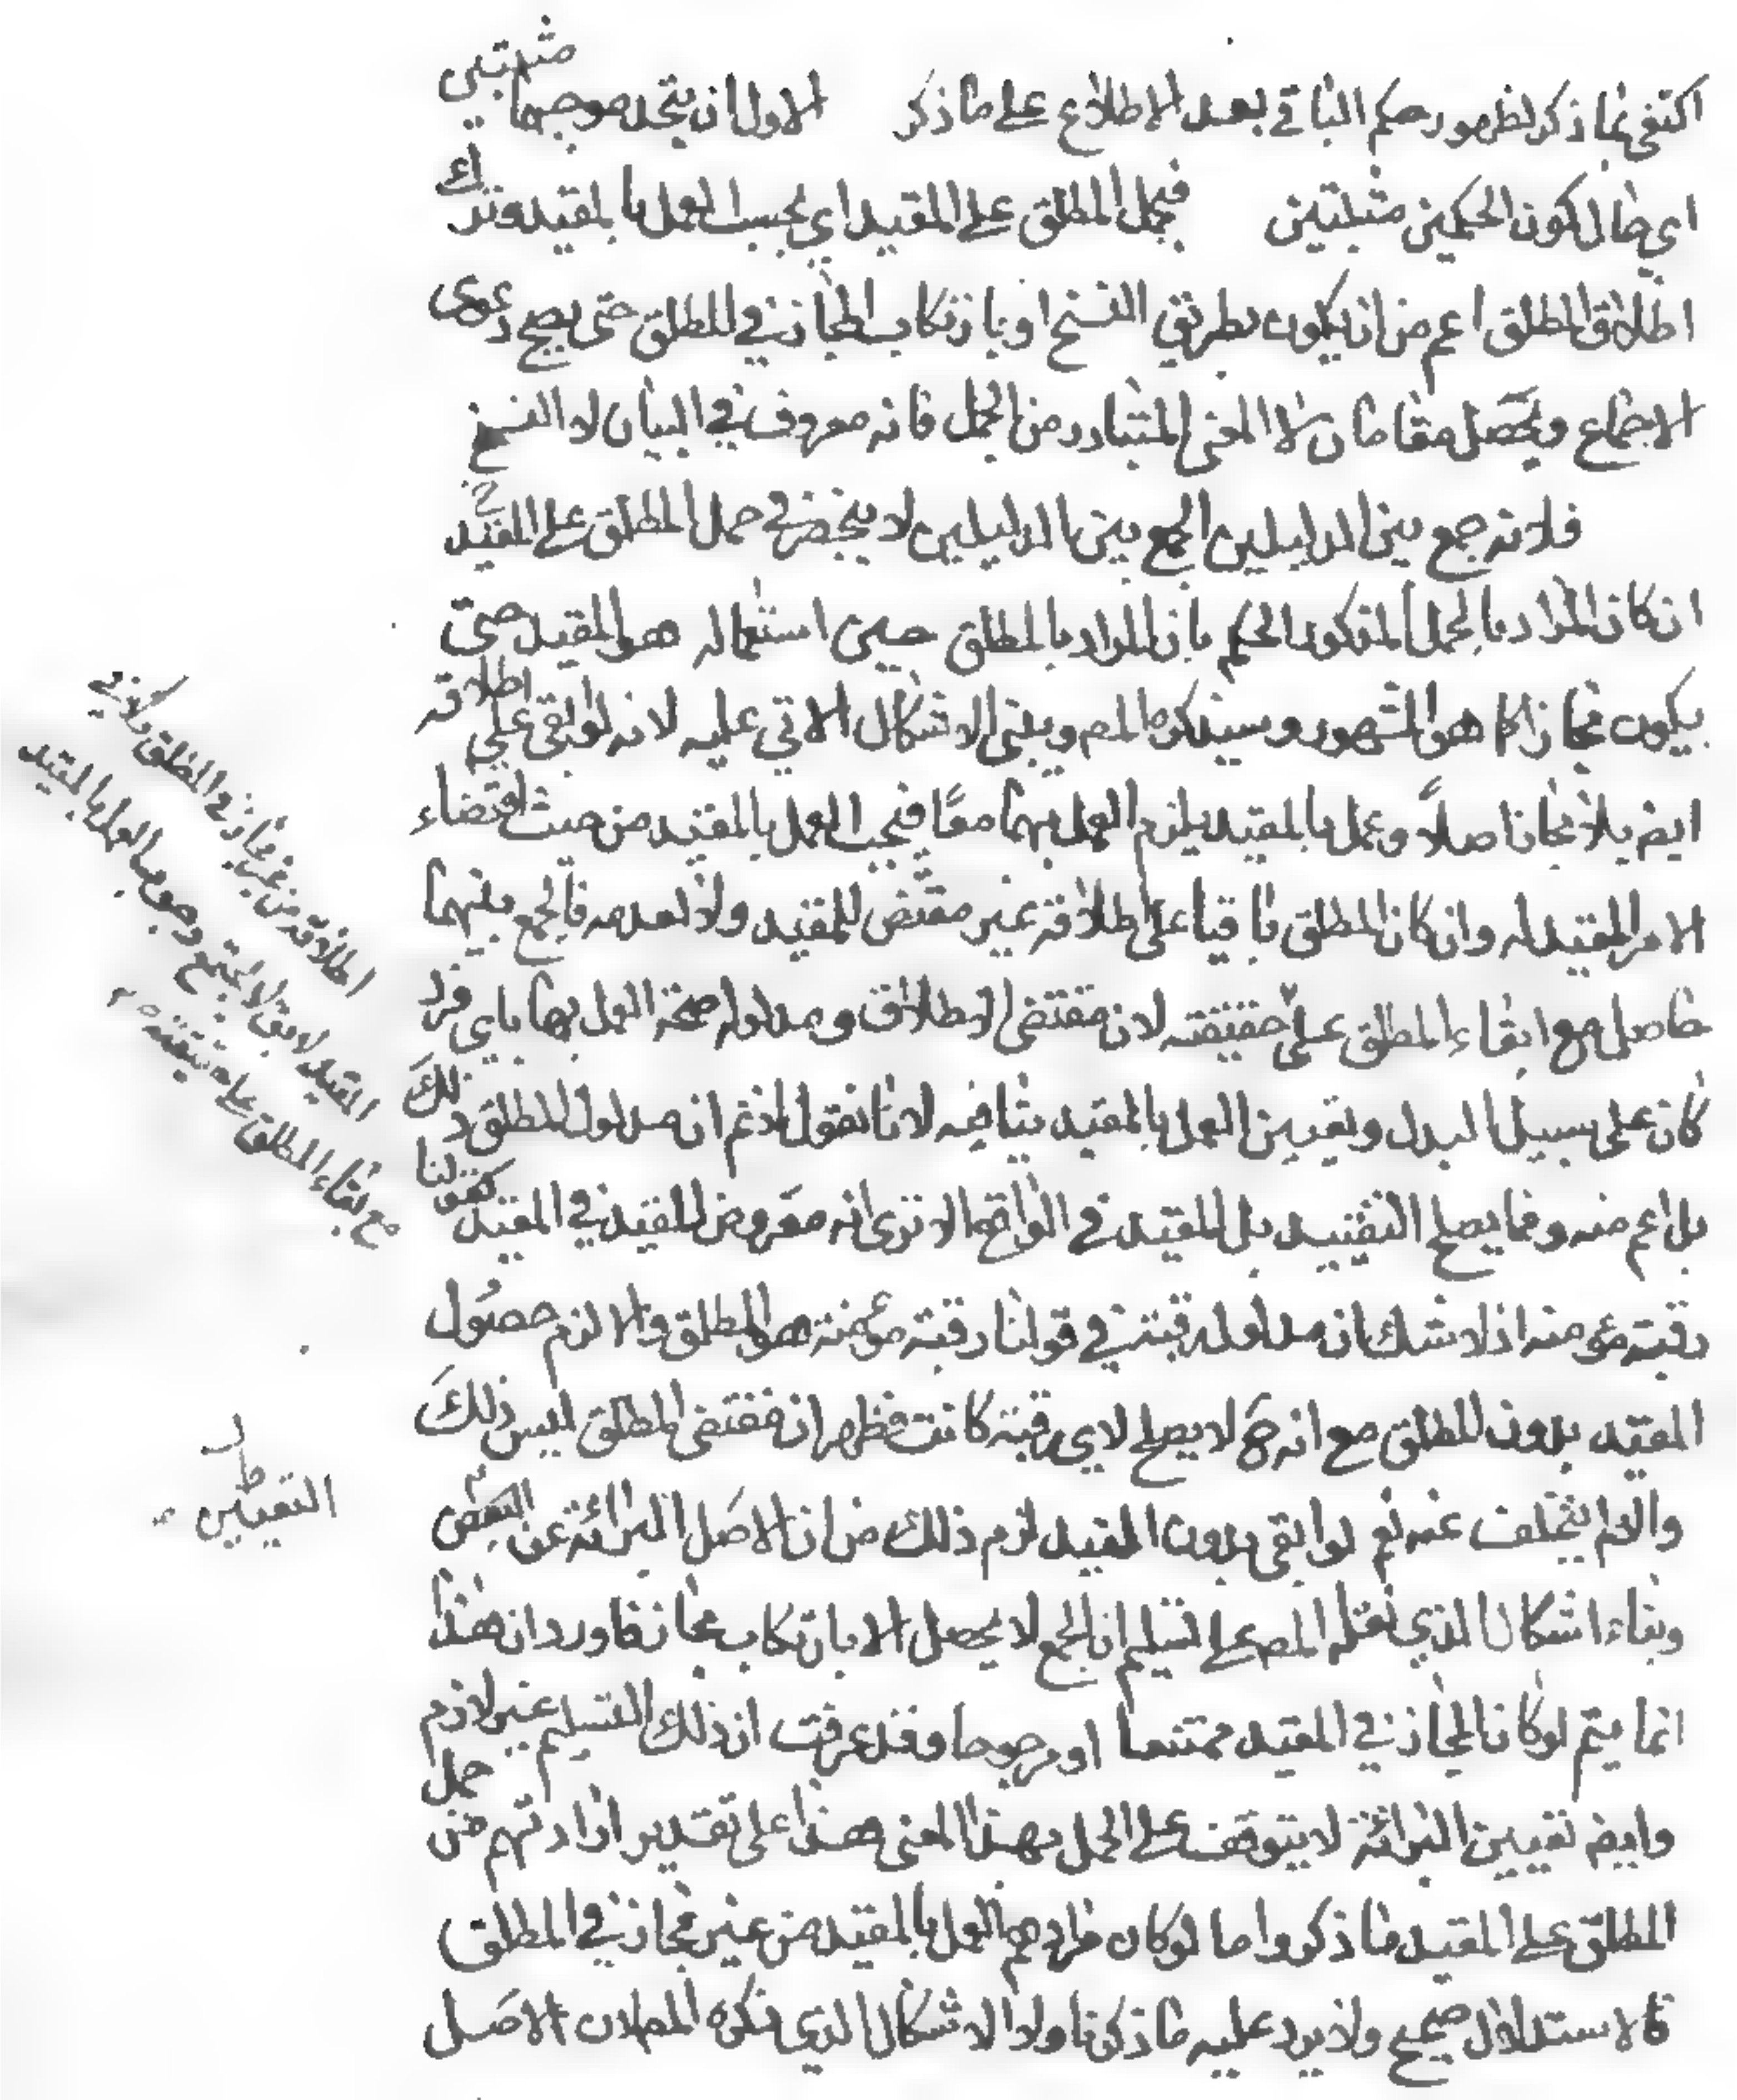 اكتفى بما ذكر لظهور حكم الباقي بعد الاطلاع على ما ذكر الاول ان يتحد موجبهما مثبتين
اي حال كون الحكمين مثبتين فيحمل المطلق على المقيد اي يجب العمل بالمقيد وترك
اطلاق المطلق اعم من ان يكون بطريق النسخ او بارتكاب المجاز في المطلق حتى يصح دعوى
الاجماع ويحصل مقامان لا المعنى المتبادر من الحمل فانه معروف في البيان لا النسخ
فلانه جمع بين الدليلين الجمع بين الدليلين لا ينحصر في حمل المطلق على المقيد
ان كان المراد بالحمل المذكور الحكم بان المراد بالمطلق حين استعماله هو المقيد حتى
يكون مجازا كما هو المشهور وسيذكره المص ويبنى الاشكال الاتي عليه لانه لو ابقى على اطلاقه
ايض بلا مجاز اصلاً وعمل بالمقيد يلزم العمل بهما معًا فيجب العمل بالمقيد من حيث اقتضاء
الامر المقيد له وان كان المطلق باقيا على اطلاقه غير مقتض للمقيد ولا لعدمه فالجمع بينهما
حاصل مع ابقاء المطلق على حقيقته لان مقتضى الاطلاق ومدلوله صحة العمل بها باي فرد
كان على سبيل البدل وتعيين العمل بالمقيد ينافيه لانا نقول لانم ان مدلول المطلق ذلك
بل اعم منه ومما يصلح التقييد بل المقيد في الواقع الا ترى انه معروض للقيد في المقيد كقولنا
رقبة مؤمنة اذ لا شك ان مدلول رقبة في قولنا رقبة مؤمنة هو المطلق والا لزم حصول
المقيد بدون المطلق مع انه ح لا يصلح لاي رقبة كانت فظهر ان مقتضى المطلق ليس ذلك
والا لم يتخلف عنه نعم لو ابقى بدون المقيد لزم ذلك من ان الاصل البرائة عن التعيين
وبناء اشكال الذي نقله المص على تسليم ان الجمع لا يحصل الا بارتكاب مجاز فاورد ان هذا
انما يتم لو كان المجاز في المقيد ممتنعا او مرجوحا وقد عرفت ان ذلك التسليم غير لازم
وايض تعيين البرائة لا يتوقف على الحمل بهذا المعنى هذا على تقدير ارادتهم من حمل
المطلق على المقيد ما ذكروا اما لو كان مرادهم العمل بالمقيد من غير مجاز في المطلق
فالاستدلال صحيح ولا يرد عليه ما ذكرنا ولا الاشكال الذي ذكره المص لان الاصل
اطلاقه من غير مجاز في المطلق ولا في
المقيد لا يق لا يجتمع وجوب العمل بالمقيد
مع بقاء المطلق على حقيقته
التعيين